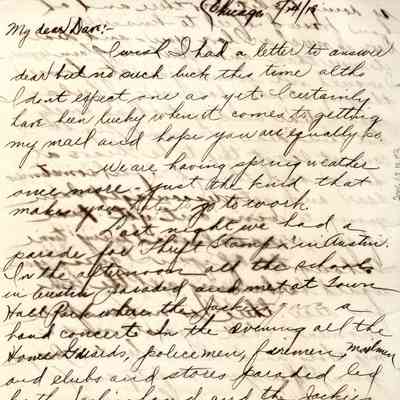 Chicago 5/14/18
My dear Dave:-
I wish I had a letter to answer
dear but no such luck this time altho
I dont expect one as yet. I certainly
have been lucky when it comes to getting
my mail and hope you are equally so.
We are having spring weather
once more - just the kind that
makes you go to work.
Last night we had a
parade for Thrift Stamps in Austin.
In the afternoon all the schools
in Austin paraded and met at Town
Hall Park where the Jackies a
band concert. In the evening all the
Home Guards, policemen, firemen, mailmen
and clubs and stores paraded led
and the Jackies